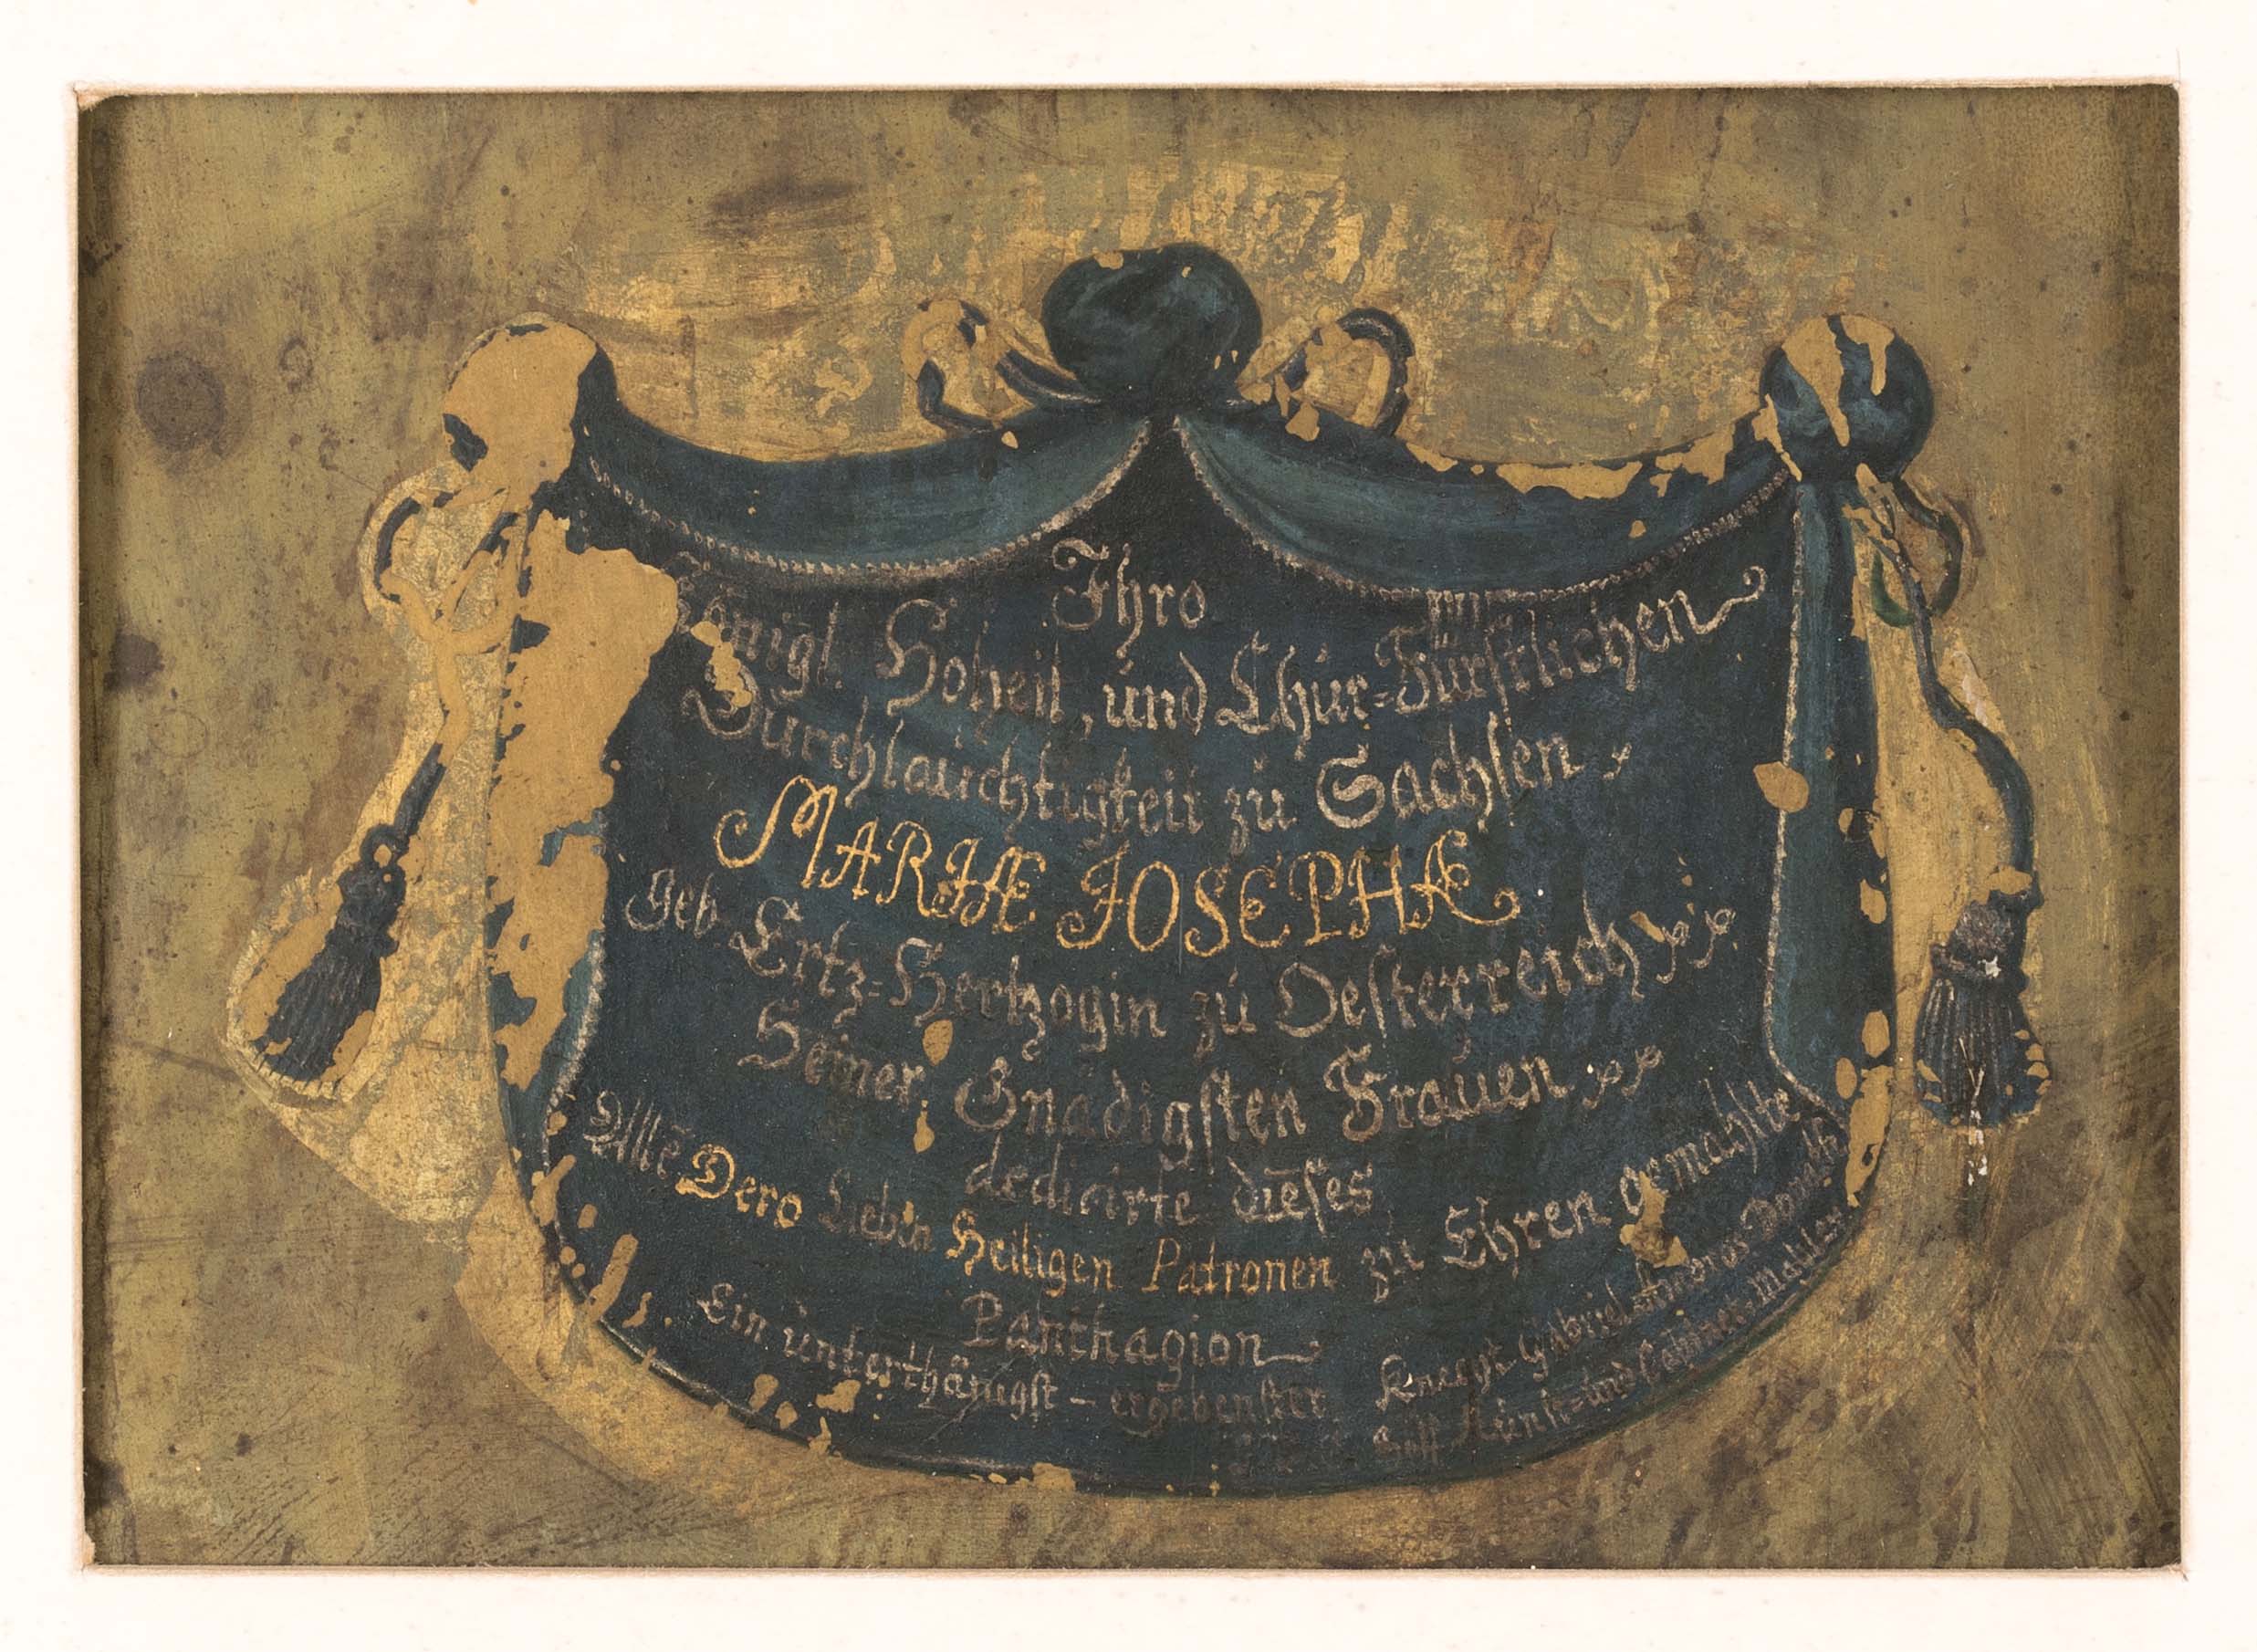 Ihro
Königl. Hoheit, und Chur=Fürstlichen
Durchlauchtigkeit zu Sachsen
MARIÆ JOSEPHÆ
Geb. Ertz=Hertzogin zu Oesterreich
Seiner Gnädigsten Frauen
dedicirte dieses,
Alle Dero Lieben Heiligen Patronen zu Ehren gemachte
Panthagion
Ein unterthänigst - ergebenster Knecht Gabriel Andreas
Hoff Kunst=und Cabinet=Mahler